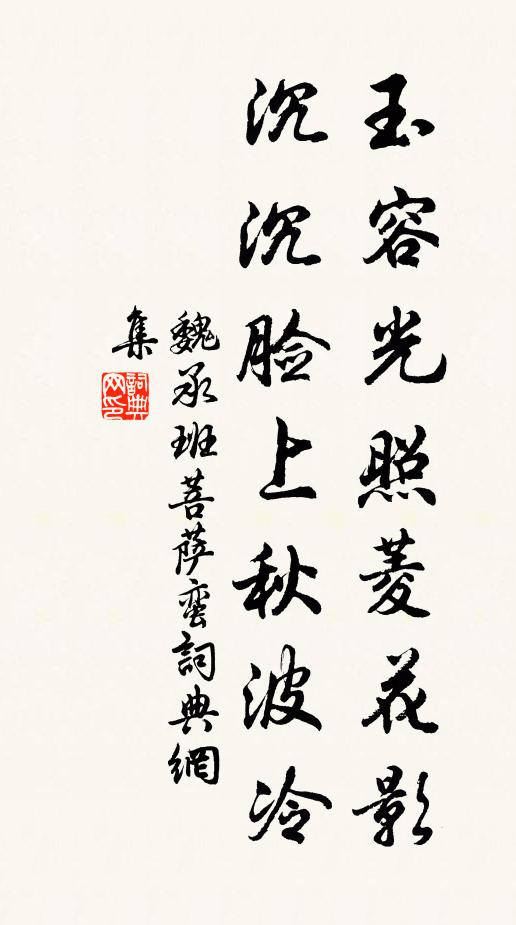 玉容光照菱花影
沉沉脸上秋波冷
魏承班菩萨蛮詞典網
集
詞典
网印